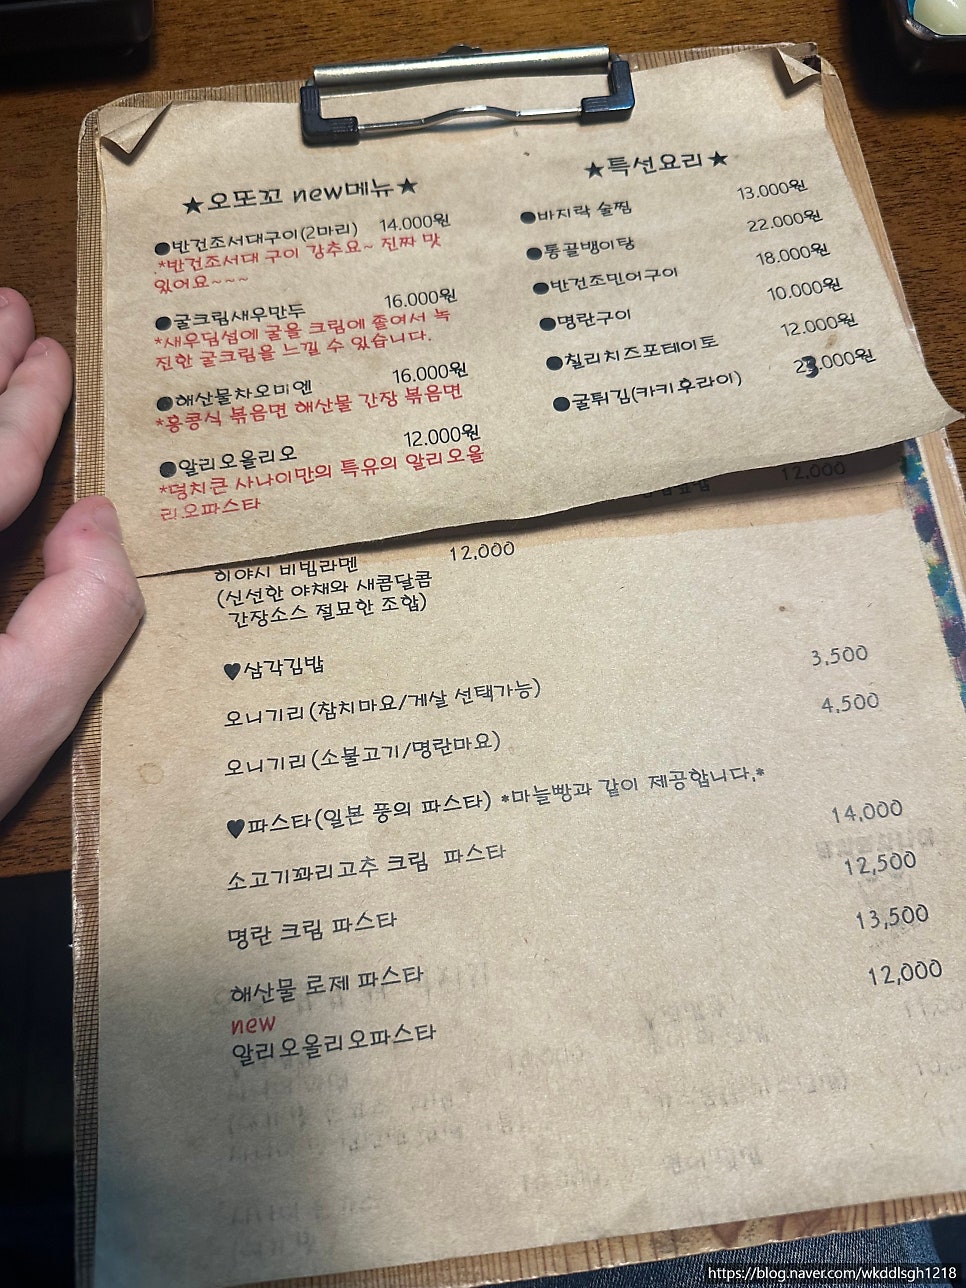 ★오또꼬 new메뉴★
●반건조서대구이(2마리) 14.000원
*반건조서대 구이 강추요~ 진짜 맛
있어요~~~
●굴크림새우만두 16.000원
*새우딤섬에 굴을 크림에 졸여서 녹
진한 굴크림을 느낄 수 있습니다.
●해산물차오미엔 16.000원
*홍콩식 볶음면 해산물 간장 볶음면
●알리오올리오 12.000원
*덩치큰 사나이만의 특유의 알리오올
리오파스타
★특선요리★
●바지락 술찜 13.000원
●통골뱅이탕 22.000원
●반건조민어구이 18.000원
●명란구이 10.000원
●칠리치즈포테이토 12.000원
●굴튀김(카키후라이) 23.000원
12,000
히야시 비빔라멘 12,000
(신선한 야채와 새콤달콤
간장소스 절묘한 조합)
♥삼각김밥
오니기리(참치마요/게살 선택가능) 3,500
오니기리(소불고기/명란마요) 4,500
♥파스타(일본 풍의 파스타) *마늘빵과 같이 제공합니다.*
소고기꽈리고추 크림 파스타 14,000
명란 크림 파스타 12,500
해산물 로제 파스타 13,500
new
알리오올리오파스타 12,000
https://blog.naver.com/wkddlsgh1218